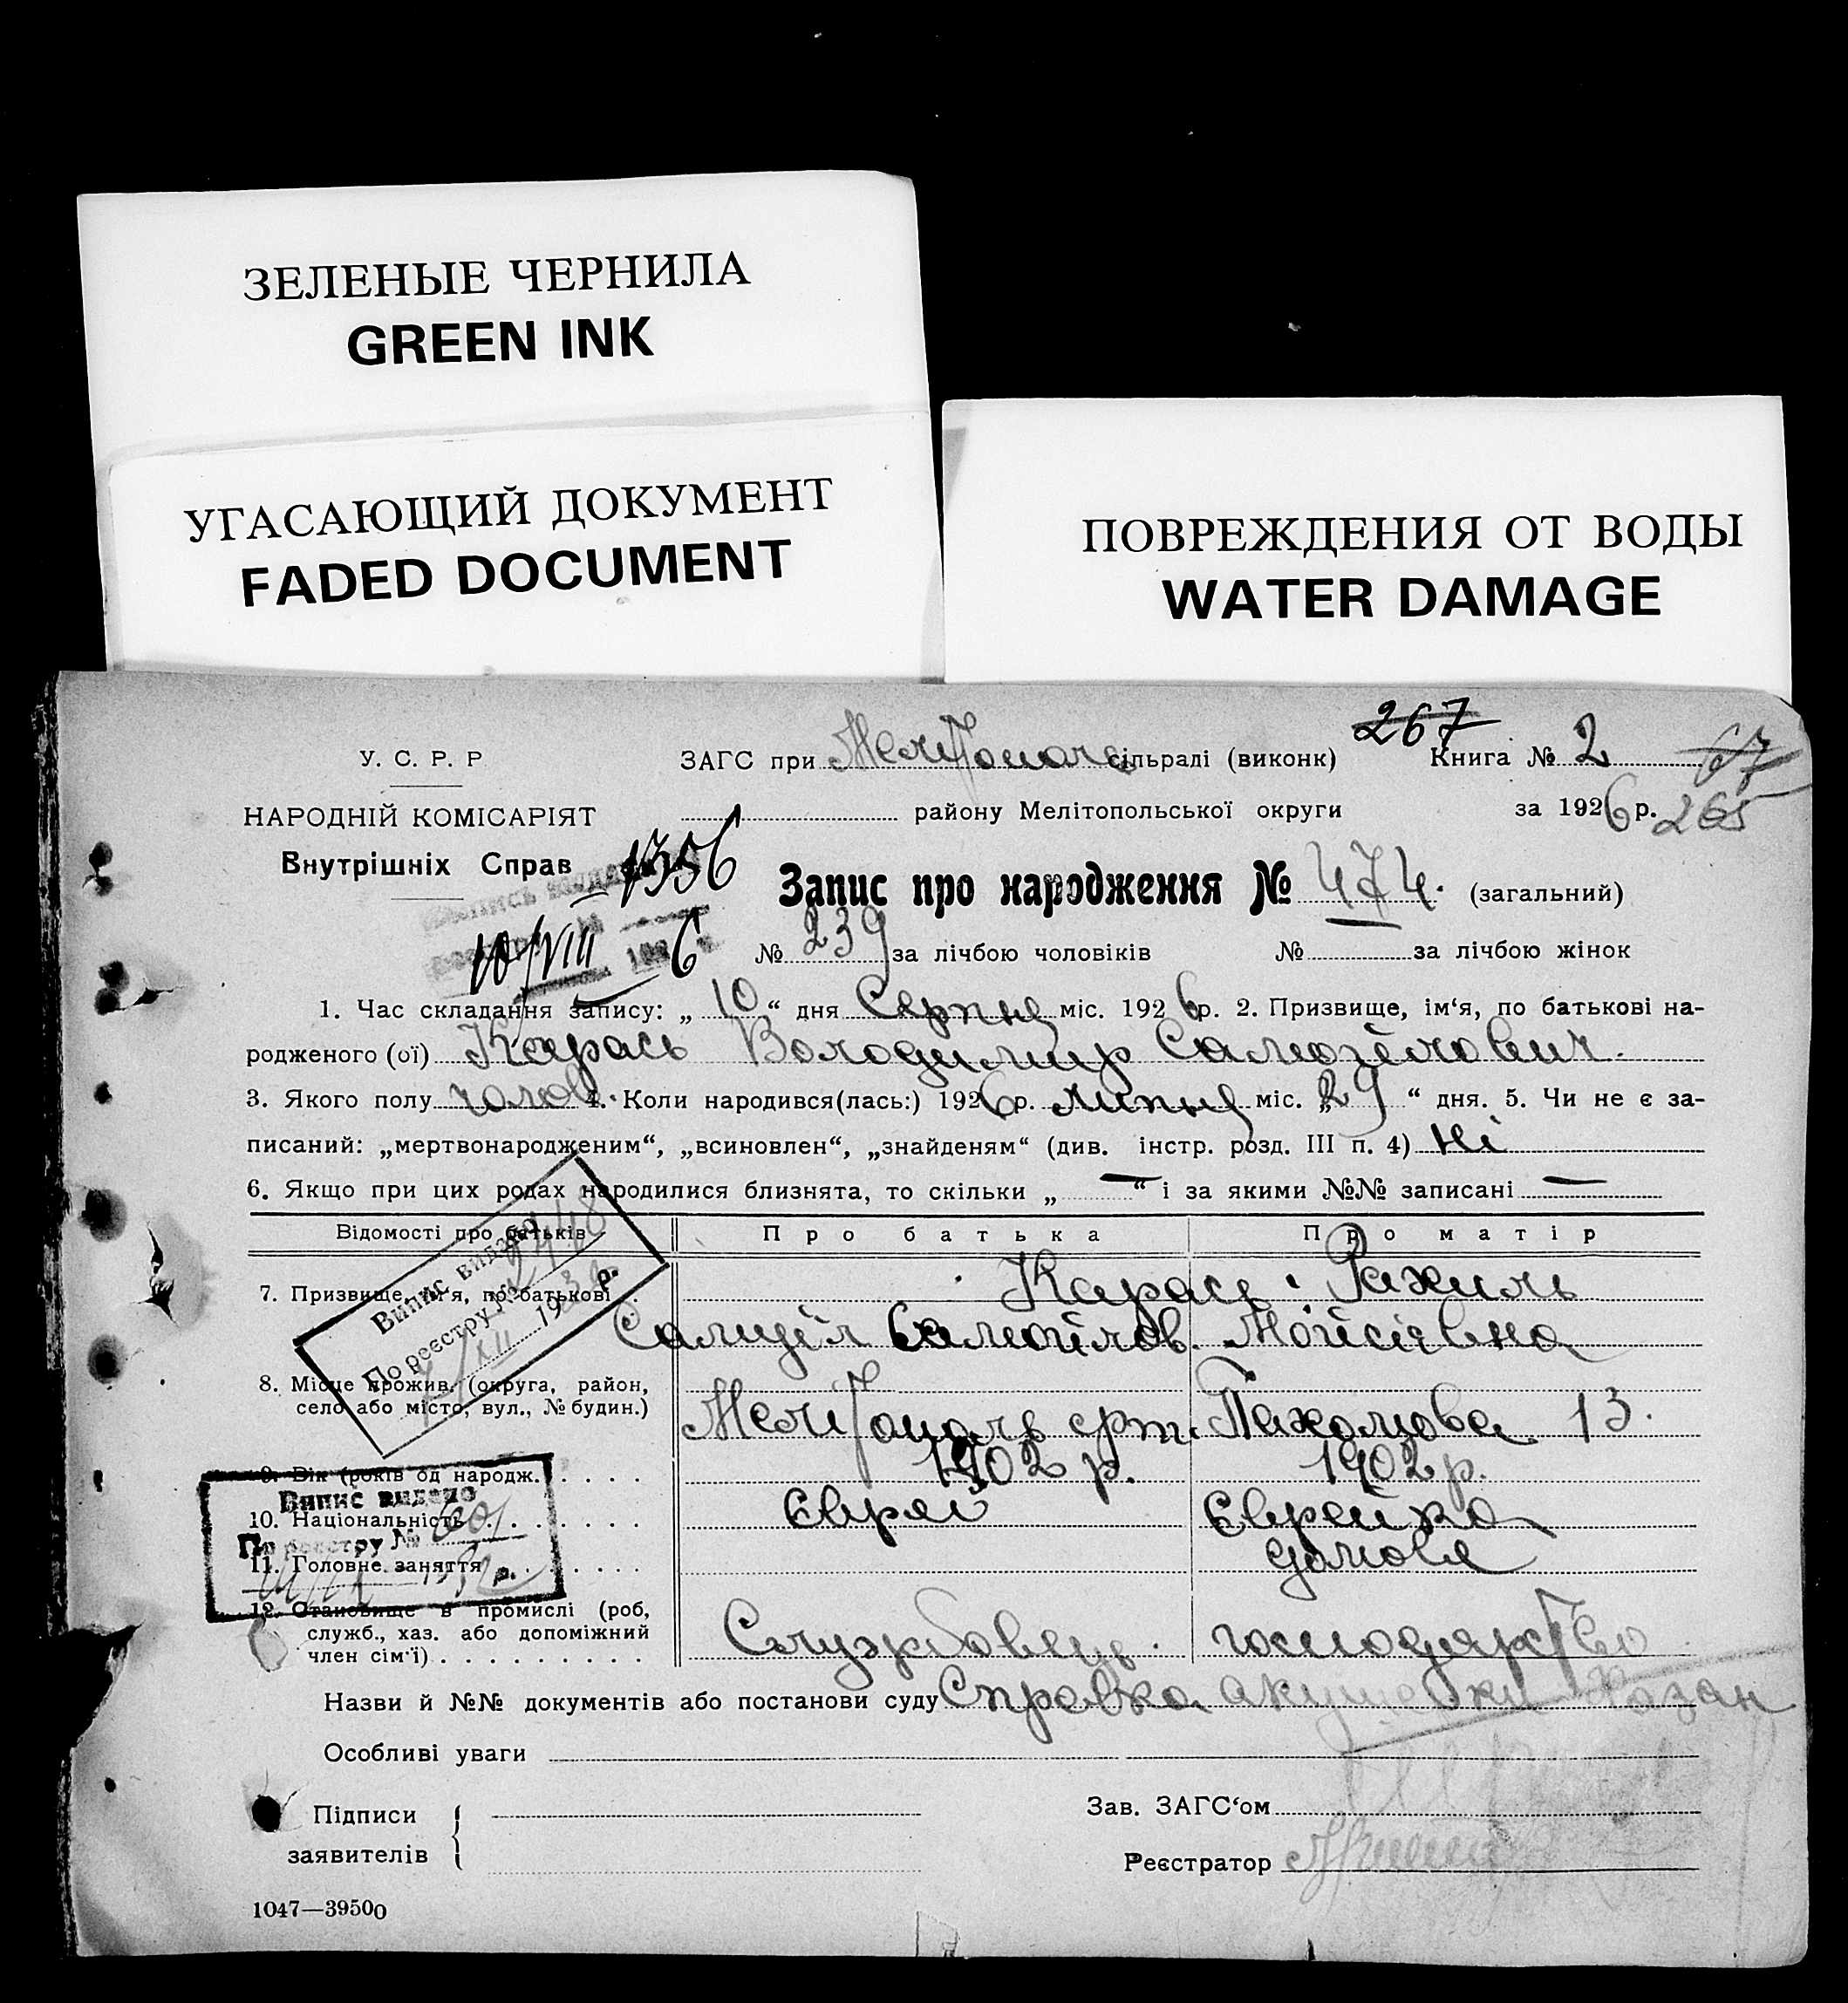 ЗЕЛЕНЫЕ ЧЕРНИЛА
GREEN INK
УГАСАЮЩИЙ ДОКУМЕНТ
FADED DOCUMENT
ПОВРЕЖДЕНИЯ ОТ ВОДЫ
WATER DAMAGE
267
У. С. Р. Р
ЗАГС при Мелітополь сільраді (виконк)
Книга № 2
67
НАРОДНІЙ КОМІСАРІЯТ
району Мелітопольської округи
за 1926 р.
265
Внутрішніх Справ
1356
Запис про народження № 474. (загальний)
10/VIII 6
№ 239 за лічбою чоловіків № за лічбою жінок
1. Час складання запису: „ 10 “ дня Серпня міс. 1926 р. 2. Призвище, ім‘я, по батькові на-
родженого (ої) Карась Володимир Самуілович.
3. Якого полу чолов. 4. Коли народився(лась:) 1926 р. липня міс. „ 29 “ дня. 5. Чи не є за-
писаний: „мертвонародженим“, „всиновлен“, „знайденям“ (див. інстр. розд. III п. 4) Ні
6. Якщо при цих родах народилися близнята, то скільки „ — “ і за якими №№ записані —
Відомості про батьків Про батька Про матір
Випис видано
По реєстру № 2448
XII 193 р.
7. Призвище, ім‘я, по батькові . Карась Рахиль
Самуіл Самойлов. Мойсіївна
8. Місце прожив. (округа, район,
село або місто, вул., № будин.)
Мелітополь Пахомова 13.
9. Вік (років од народж. . . . . 1902 р. 1902 р.
Випис видано
10. Національність . . . . . . . Єврей Єврейка
По реєстру №
11. Головне заняття . . . . . . домове
р.
12. Становище в промислі (роб,
служб., хаз. або допоміжний
член сім‘ї) . . . . . . . . . Службовець. господарство
Назви й №№ документів або постанови суду Справка акушерки
Особливі уваги
Підписи
заявителів
Зав. ЗАГС‘ом
Реєстратор
1047—39500